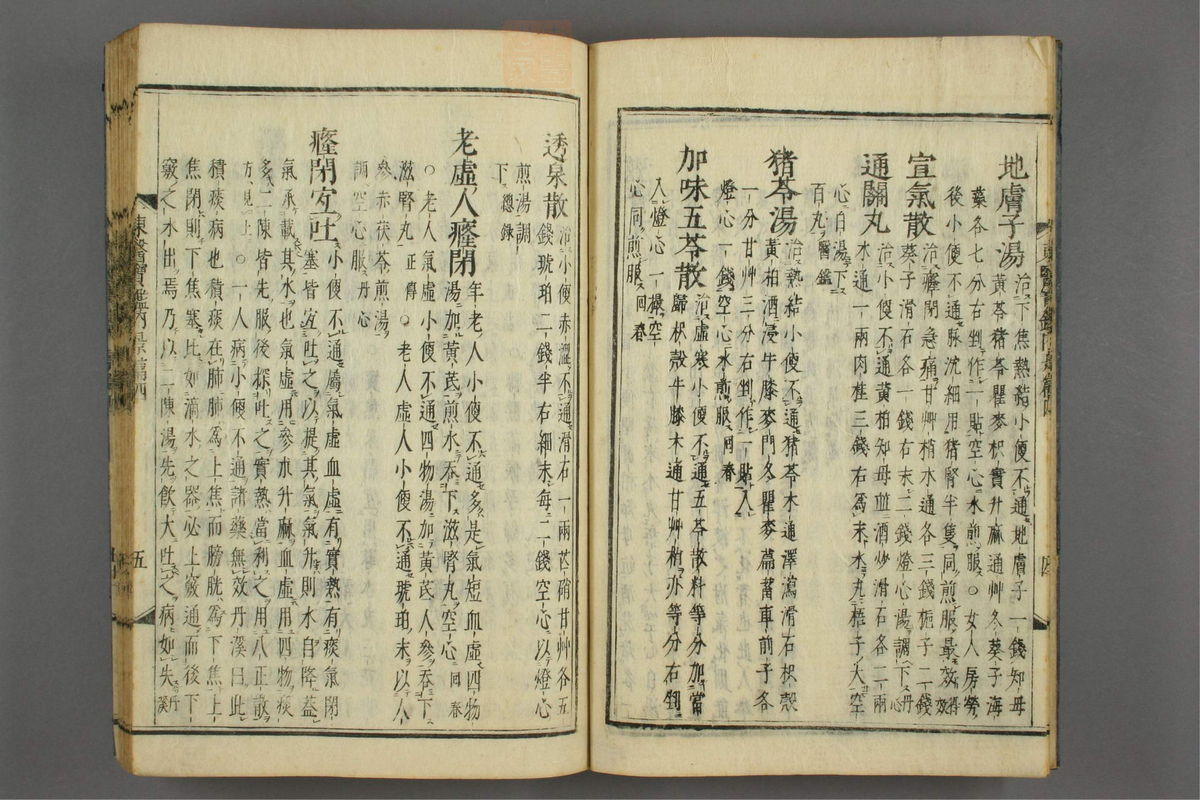 地膚子湯 治下焦熱結小便不通地膚子一錢知母
黃芩猪苓瞿麥枳實升麻通艸冬葵子海
藻各七分右剉作一貼空心水煎服○女人房勞
後小便不通脉沈細用猪腎半隻同煎服最效得效
宣氣散 治癃閉急痛甘艸梢木通各三錢梔子二錢
葵子滑石各一錢右末二錢燈心湯調下丹心
通關丸 治小便不通黃栢知母並酒炒滑石各二兩
木通一兩肉桂三錢右爲末水丸梧子大空
心白湯下
百丸醫鑑
猪苓湯 治熱結小便不通猪苓木通澤瀉滑石枳殼
黃栢酒浸牛膝麥門冬瞿麥萹蓄車前子各
一分甘艸三分右剉作一貼入
燈心一錢空心水煎服回春
加味五苓散 治虛寒小便不通五苓散料等分加當
歸枳殼牛膝木通甘艸梢亦等分右剉
入燈心一撮空
心同煎服回春
東醫寶鑑內景篇四
四
透泉散 治小便赤澀不通滑石一兩芒硝甘艸各五
錢琥珀二錢半右細末每二錢空心以燈心
煎湯調
下總錄
老虛人癃閉 年老人小便不通多是氣短血虛四物
湯加黃芪煎水吞下滋腎丸空心回春
○老人氣虛小便不通四物湯加黃芪人參吞下
滋腎丸正傳○老人虛人小便不通琥珀末以人
參赤茯苓煎湯
調空心服丹心
癃閉宜吐 小便不通屬氣虛血虛有實熱有痰氣閉
塞皆宜吐之以提其氣氣升則水自降蓋
氣承載其水也氣虛用參朮升麻血虛用四物痰
多二陳皆先服後探吐之實熱當利之用八正散
方見上○一人病小便不通諸藥無效丹溪曰此
積痰病也積痰在肺肺爲上焦而膀胱爲下焦上
焦閉則下焦塞比如滴水之器必上竅通而後下
竅之水出焉乃以二陳湯先飮大吐之病如失丹溪
東醫寶鑑內景篇四
五